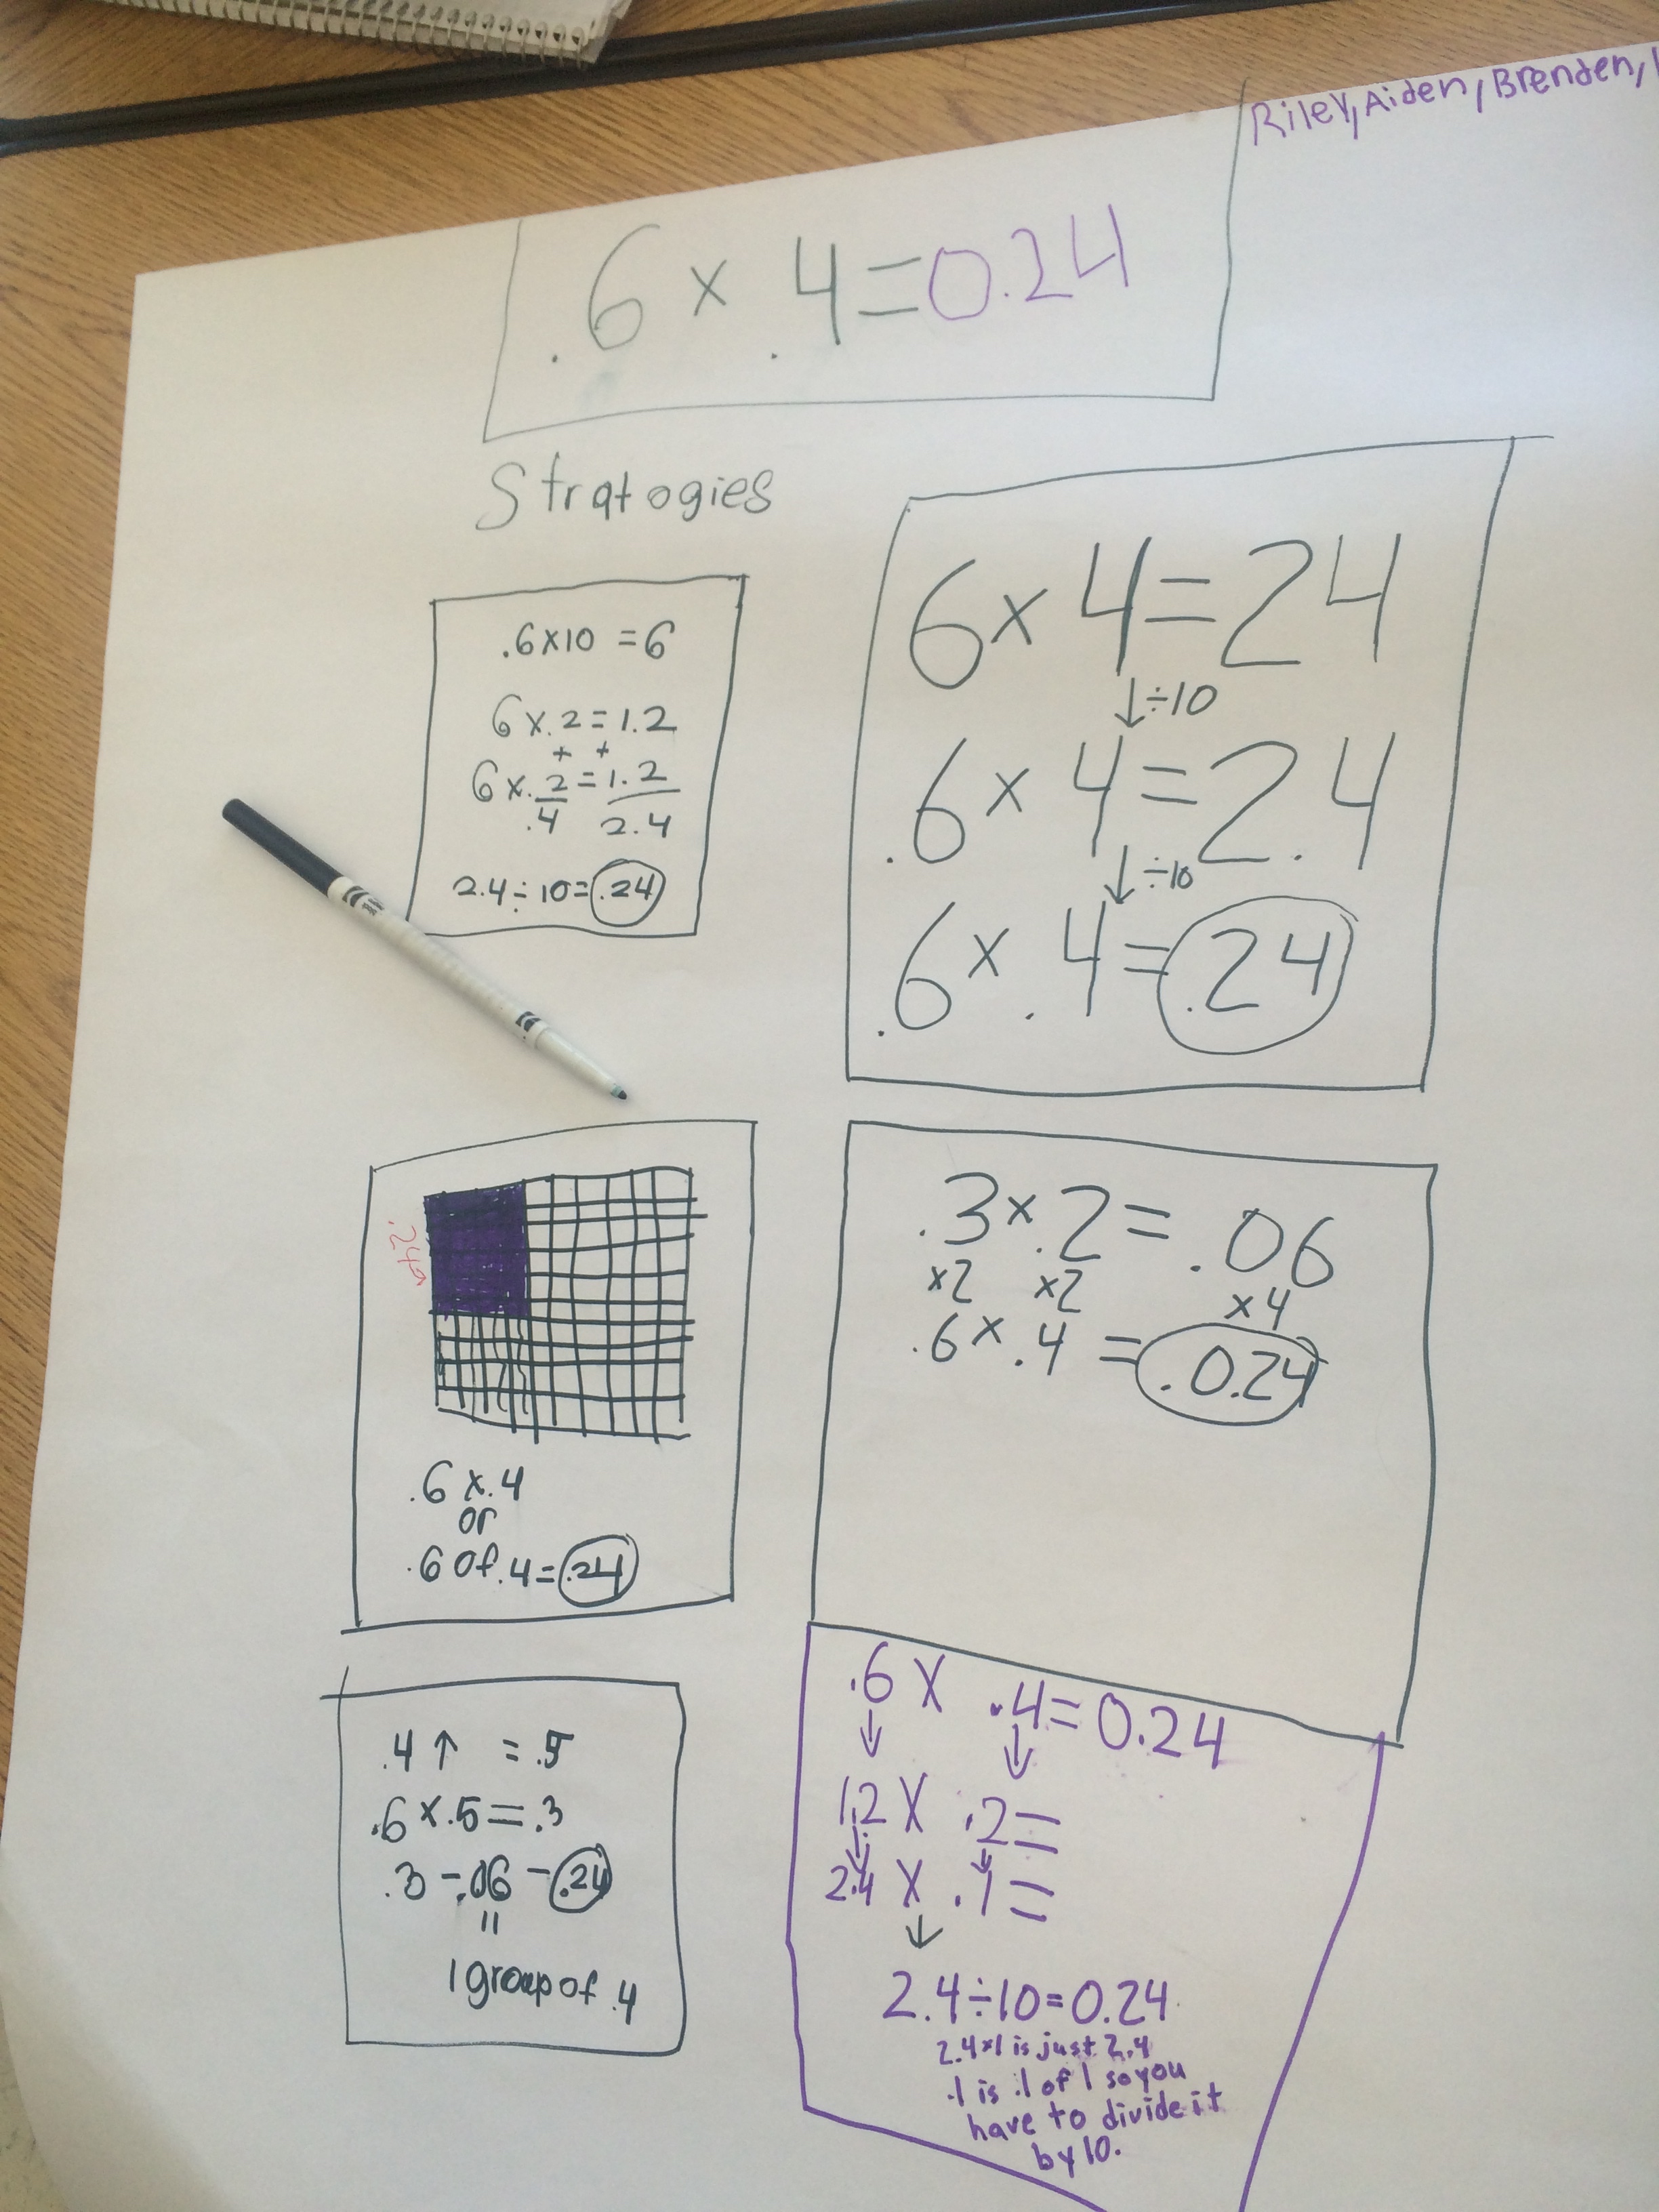 Riley, Aiden, Brenden,
.6 x .4 = 0.24
Stratogies
.6 x 10 = 6
6 x .2 = 1.2
+ +
6 x .2 = 1.2
.4 2.4
2.4 ÷ 10 = .24
6 x 4 = 24
↓ ÷10
.6 x 4 = 2.4
↓ ÷10
.6 x .4 = .24
.24
.6 x .4
or
.6 of .4 = .24
.3 x .2 = .06
x2 x2 x4
.6 x .4 = .0.24
.4 ↑ = .5
.6 x .5 = .3
.3 - .06 - .24
"
1 group of .4
.6 x .4 = 0.24
↓ ↓
1.2 x .2 =
↓ ↓
2.4 x .1 =
↓
2.4 ÷ 10 = 0.24
2.4 x 1 is just 2.4
.1 is .1 of 1 so you
have to divide it
by 10.